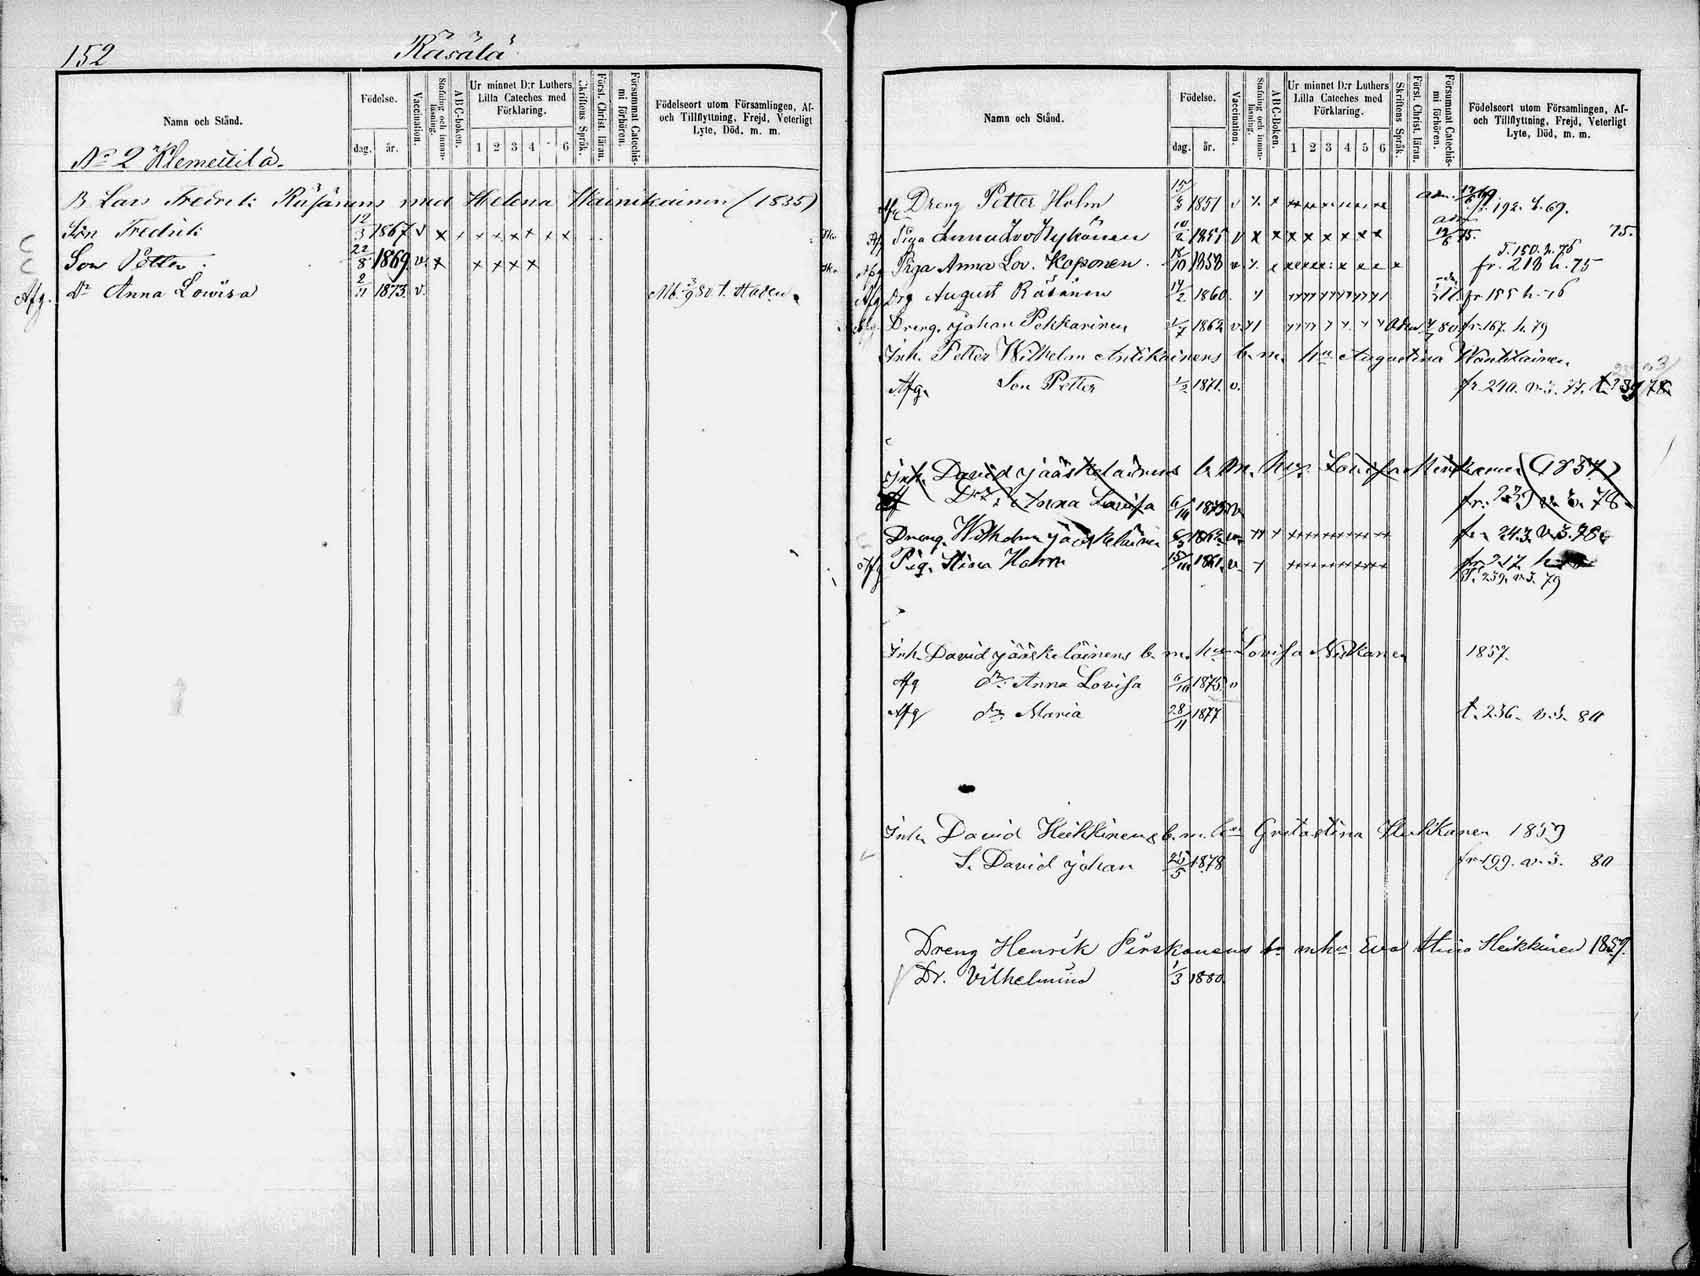 152 Räsälä
Namn och Stånd.
Födelse.
dag. år.
Vaccination.
Stafning och innanläsning.
ABC-boken.
Ur minnet D:r Luthers Lilla Cateches med Förklaring.
1 2 3 4 6
Skriftens Språk.
Först. Christ. läran.
Försummat Catechismi förhören.
Födelseort utom Församlingen, Af- och Tillflyttning, Frejd, Veterligt Lyte, Död, m. m.
No 2 Klemettilä.
B Lars Fredrik Räsänens med Helena Hainikainen (1835)
Son Fredrik 12/3 1867 v x x x x x x x
Son Petter 22/8 1869 v. x x x x x
Afg. Dr Anna Lowisa 2/11 1873. v.
Namn och Stånd.
Födelse.
dag. år.
Vaccination.
Stafning och innanläsning.
ABC-boken.
Ur minnet D:r Luthers Lilla Cateches med Förklaring.
1 2 3 4 5 6
Skriftens Språk.
Först. Christ. läran.
Försummat Catechismi förhören.
Födelseort utom Församlingen, Af- och Tillflyttning, Frejd, Veterligt Lyte, Död, m. m.
Afg Dreng Petter Holm 15/3 1851 v 192. 69.
Afg Piga Anna Lov Nykänen 10/2 1855 v 75.
T. 150. h. 76
Afg Piga Anna Lov. Koponen 10 1858 v. fr. 218 h. 75
Afg Drg August Räsänen 14/2 1860. fr 155 h. 76
Dreng Johan Pekkarinen 1/7 1862 v. 80 fr. 167. h. 79
Inh. Petter Wilhelm Antikainens b. m. hu Augustina Wäntilainen
Afg. Son Petter 1/2 1871. v. fr. 240. v. s. 77. t. 239 78.
Inh. David Jääskeläinens b. m. hu. Lovisa Niskanen (1857)
Af Dr. Anna Lovisa 6/10 1875 v. fr. 239 v. s. 78.
Dreng. Wilhelm Jääskeläinen 1862 fr. 213 v. s. 78.
Afg Pig. Stina Holm 15/10 1861. v. fr. 217 h
T. 239. v. s. 79
Inh. David Jääskeläinens b. m. hu Lovisa Niskanen 1857.
Afg dr. Anna Lovisa 6/10 1875 v
Afg dr. Maria 28/11 1877 t. 236. v. s. 80
Inh. David Heikkinens b. m. hu Greta Stina 1859
S. David Johan 25/5 1878 fr 199. v. s. 80
Dreng Henrik Pirskanens b. m hu Eva Stina Heikkinen 1859.
Dr. Vilhelmina 1/3 1880.